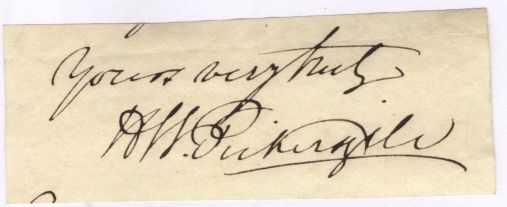 Yours very truly
H W. Pickersgill